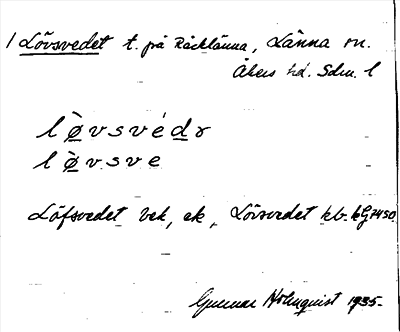 1 Lövsvedet t. på Räcklänna, Länna sn.
Åkers hd. Sdm. l
lø̀vsvédɿ
lø̀vsve
Löfsvedet vek, ek, Lövsvedet kb.
Gunnar Holmquist 1935.